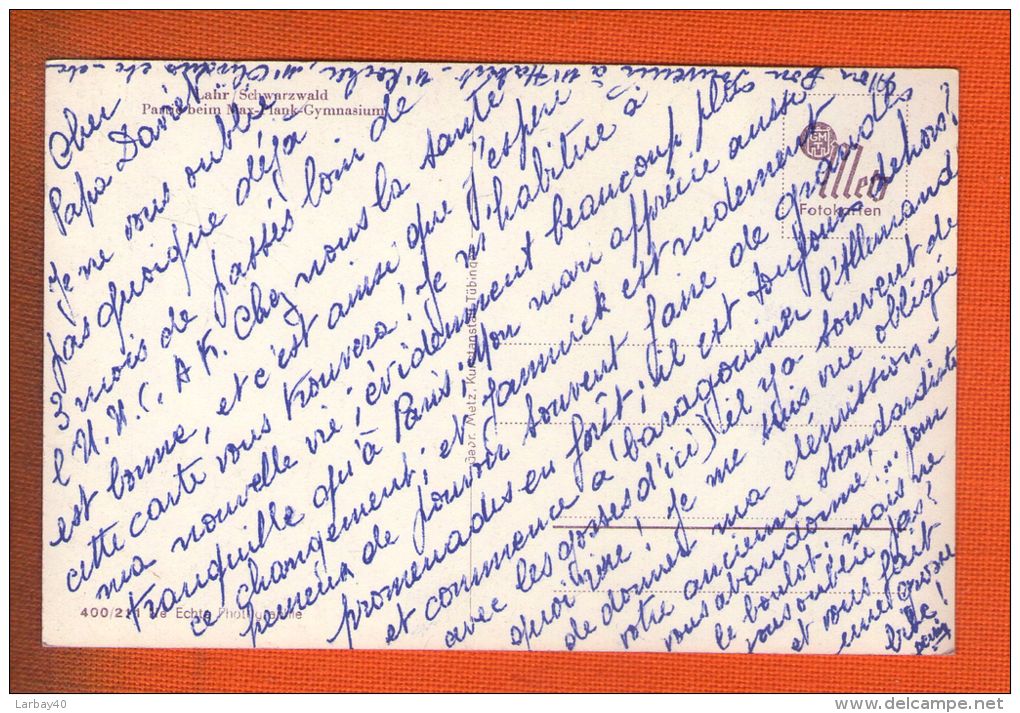 Lahr / Schwarzwald
Partie beim Max-Plank-Gymnasium
Cher
Papa Daniel
Je ne vous oublie
pas quoique déjà
3 mois de passés loin de
l'U.N.C.A.K. Chez nous la santé
est bonne, et c'est ainsi que j'espère
cette carte vous trouvera! Je m'habitue à
ma nouvelle vie, évidemment beaucoup plus
tranquille qu'à Paris; Mon mari apprécie aussi
ce changement; et Jannick est rudement
heureux de pouvoir souvent faire de grandes
promenades en forêt; il est toujours dehors!
et commence à "baragouiner l'Allemand
avec les gosses d'ici" il y a souvent de
quoi rire! Je me suis vue obligée
de donner ma démission -
votre ancienne standardiste
vous abandonne! ... pour
le boulot; mais ne
vous oublie pas?
et vous fait
une grosse
bise!
Mon bon souvenir à Mr etc - etc -
GMT
Metz
Fotokarten
Gebr. Metz, Kunstanstalt, Tübingen
400/211 Echte Photographie
Larbay40
delcampe.net